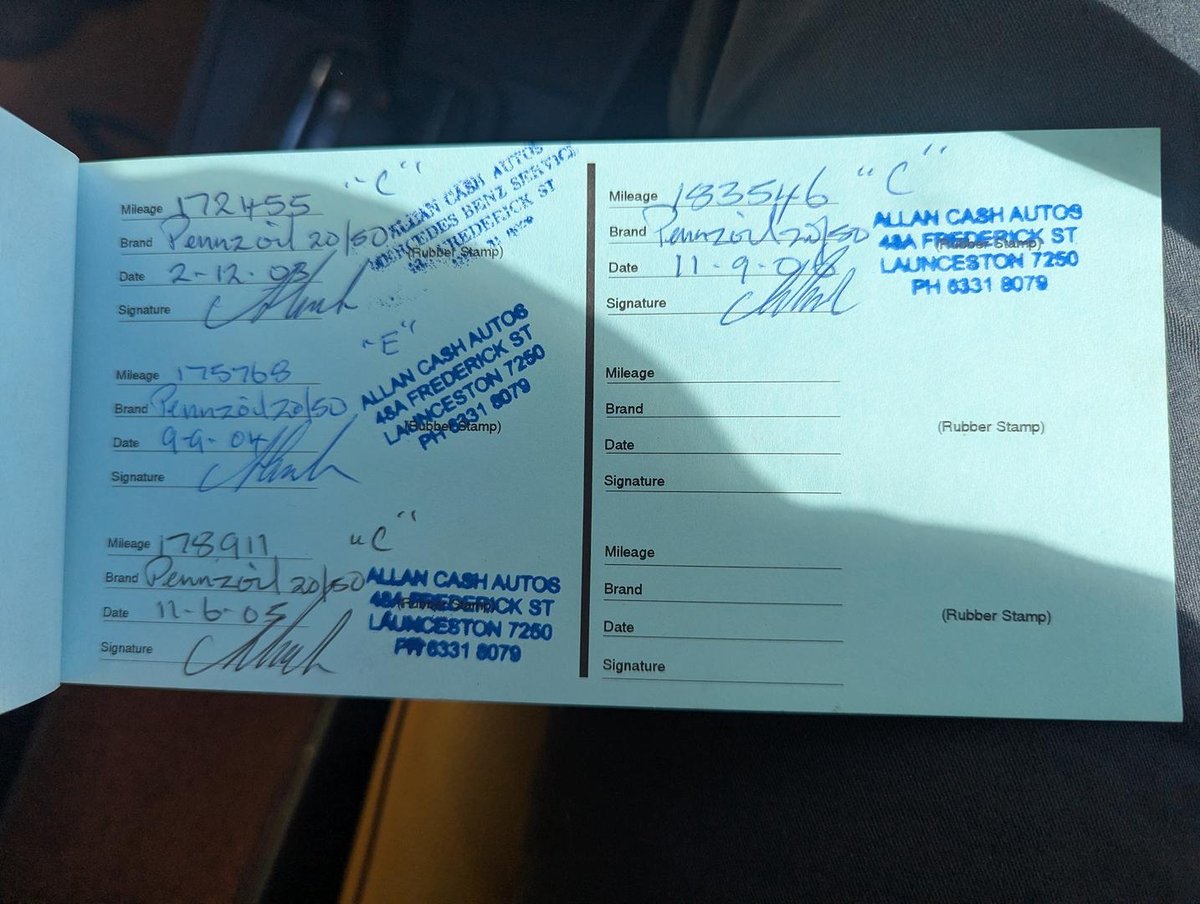 Mileage 172455 "C"
Brand Pennzoil 20/50
Date 2-12-03
Signature
ALLAN CASH AUTOS
MERCEDES BENZ SERVICE
FREDERICK ST
(Rubber Stamp)
Mileage 175768 "E"
Brand Pennzoil 20/50
Date 9-9-04
Signature
ALLAN CASH AUTOS
48A FREDERICK ST
LAUNCESTON 7250
PH 6331 8079
(Rubber Stamp)
Mileage 178911 "C"
Brand Pennzoil 20/50
Date 11-6-05
Signature
ALLAN CASH AUTOS
48A FREDERICK ST
(Rubber Stamp)
LAUNCESTON 7250
PH 6331 8079
Mileage 183546 "C"
Brand Pennzoil 20/50
Date 11-9-
Signature
ALLAN CASH AUTOS
48A FREDERICK ST
(Rubber Stamp)
LAUNCESTON 7250
PH 6331 8079
Mileage
Brand
Date
Signature
(Rubber Stamp)
Mileage
Brand
Date
Signature
(Rubber Stamp)